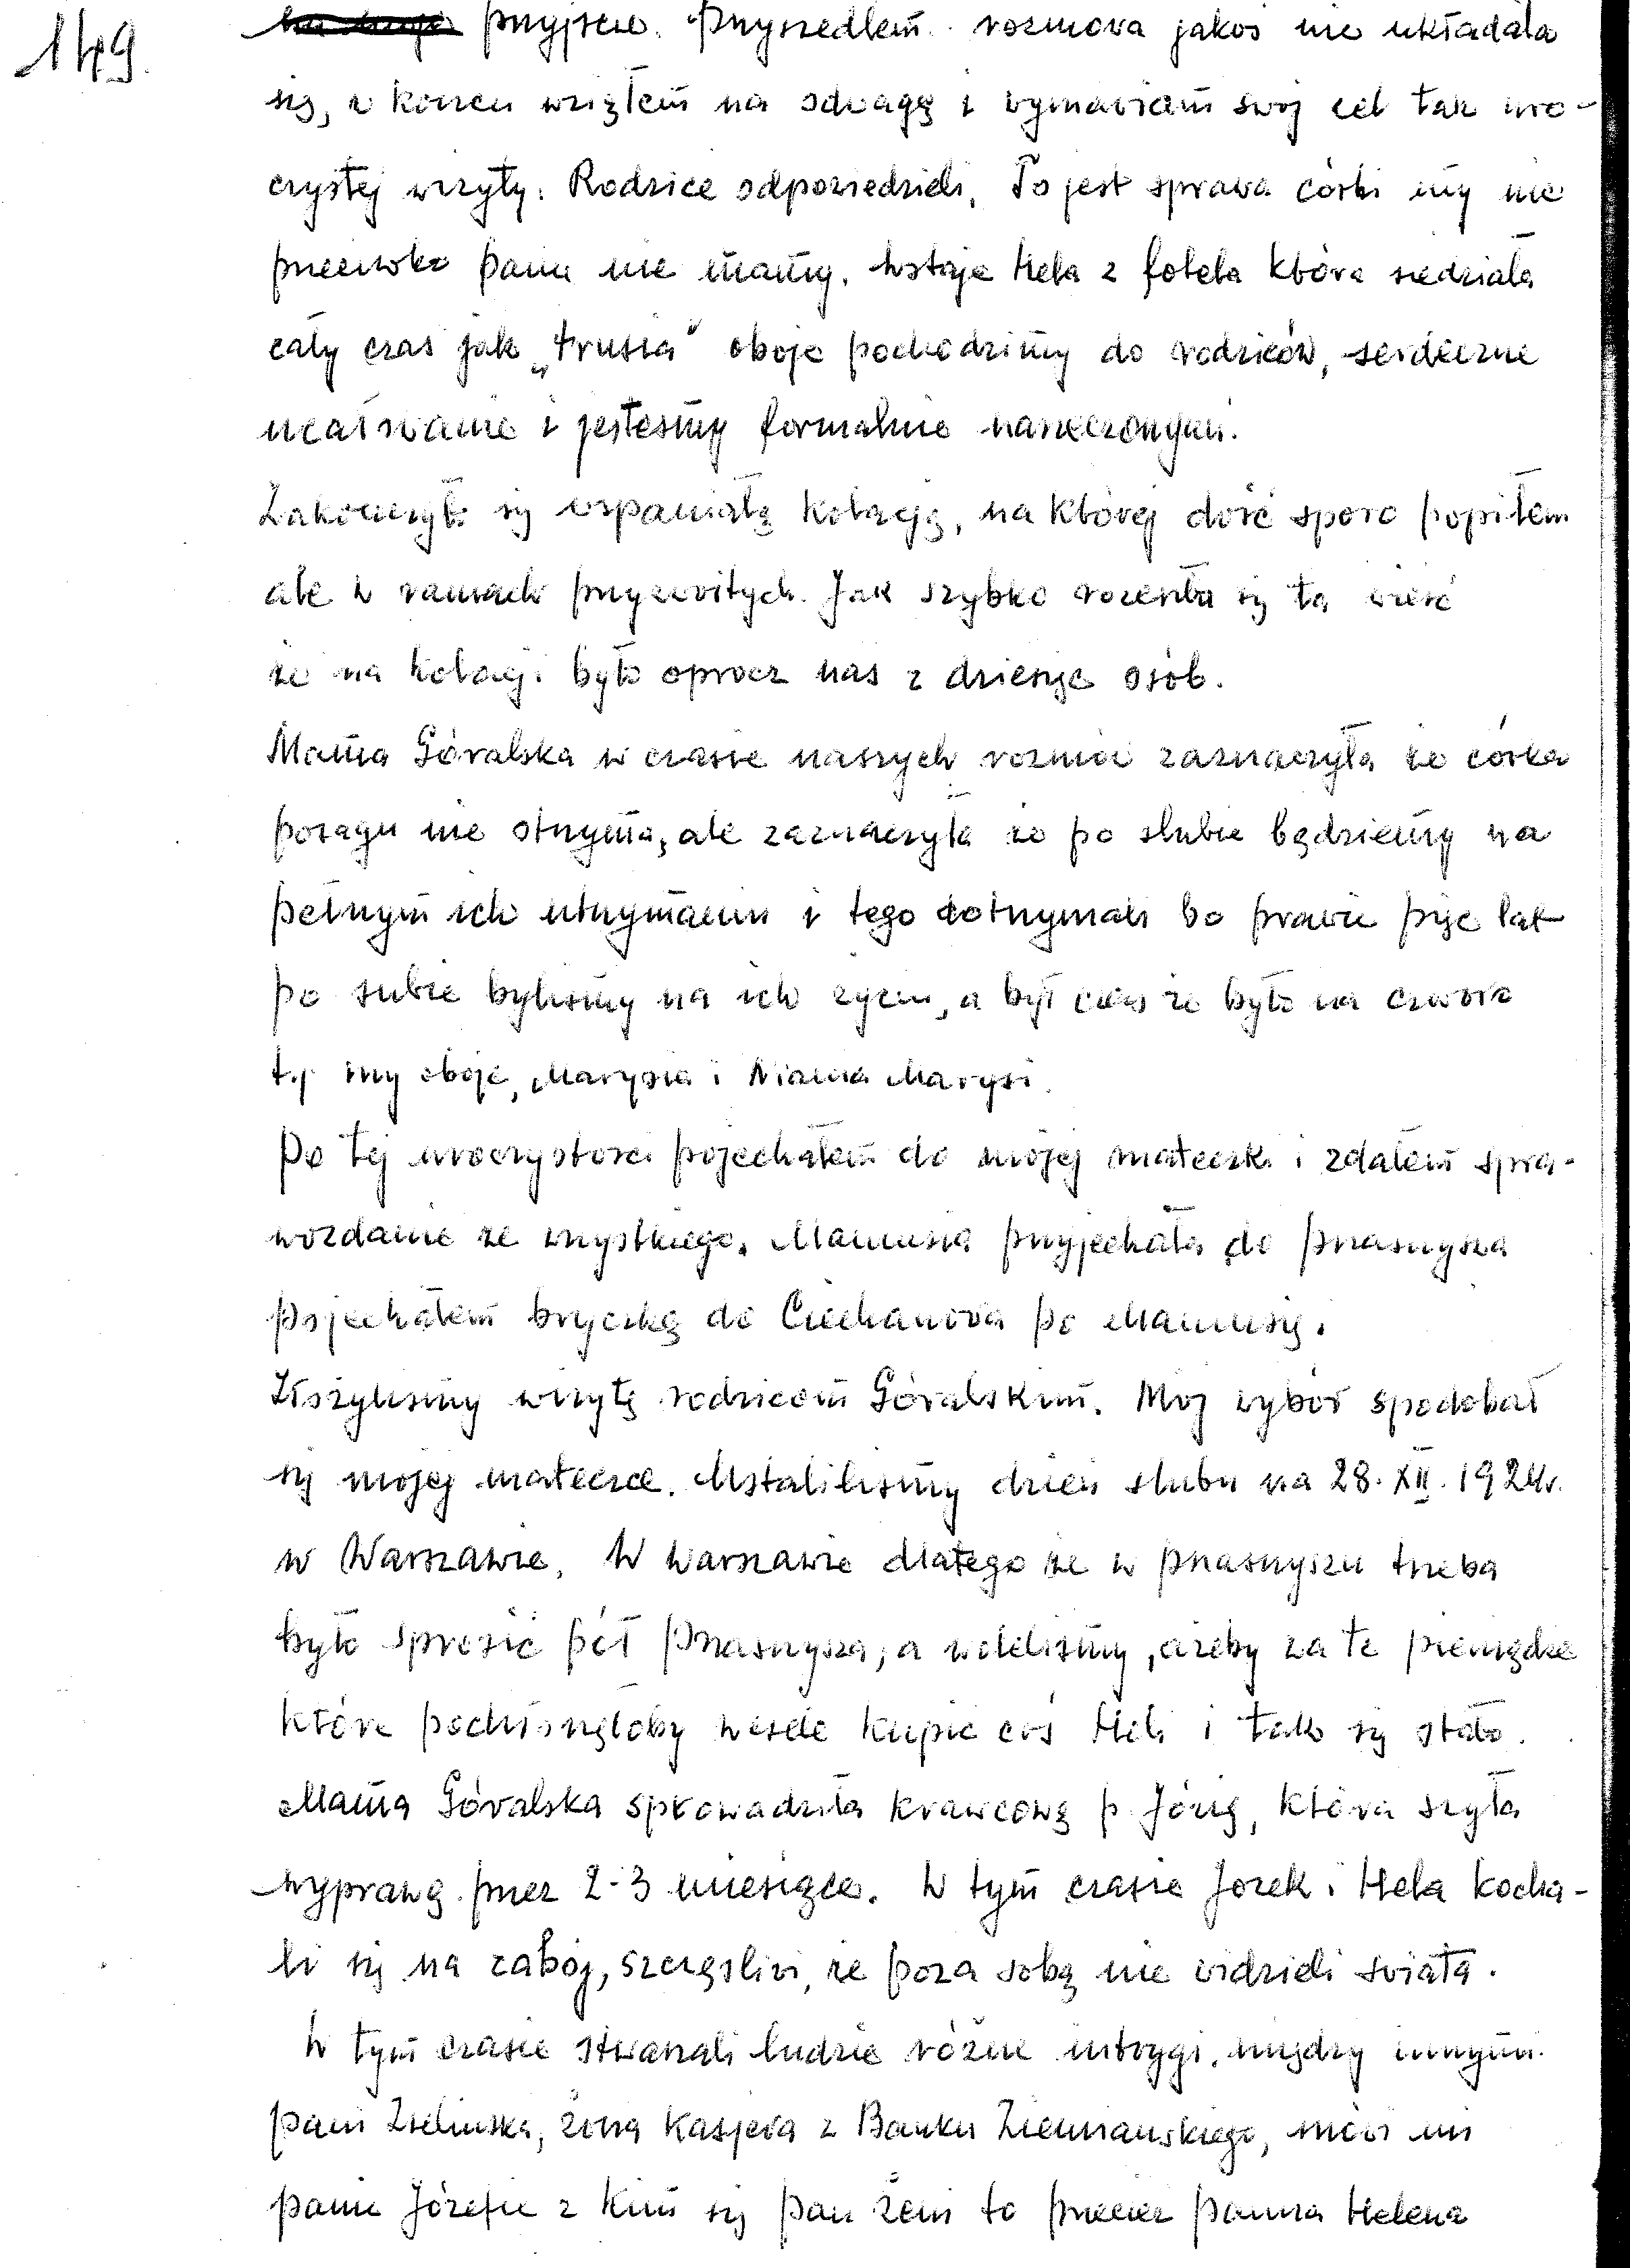 149.
przyjście. Przyszedłem. rozmowa jakoś nie układała
się, w końcu wziąłem na odwagę i wymawiam swój cel tak uro-
czystej wizyty. Rodzice odpowiedzieli, To jest sprawa córki my nic
przeciwko panu nie mamy. Wstaje Hela z fotela która siedziała
cały czas jak „trusia" oboje pochodzimy do rodziców, serdeczne
ucałowanie i jesteśmy formalnie narzeczonymi.
Zakończyło się wspaniałą kolacją, na której dość sporo popiłem
ale w ramach przyzwoitych. Jak szybko rozeszła się ta wieść
że na kolacji było oprócz nas z dziesięć osób.
Mama Góralska w czasie naszych rozmów zaznaczyła że córka
posagu nie otrzyma, ale zaznaczyła że po ślubie będziemy na
pełnym ich utrzymaniu i tego dotrzymali bo prawie pięć lat
po subie byliśmy na ich życiu, a był czas że było na czworo
t.j. my oboje, Marysia i Niania Marysi.
Po tej uroczystości pojechałem do mojej mateczki i zdałem spra-
wozdanie ze wszystkiego. Mamusia przyjechała do Przasnysza
Pojechałem bryczką do Ciechanowa po Mamusię.
Złożyliśmy wizytę rodzicom Góralskim. Mój wybór spodobał
się mojej mateczce. Ustaliliśmy dzień ślubu na 28. XII. 1924r.
w Warszawie. W Warszawie dlatego że w Przasnyszu trzeba
było sprosić pół Przasnysza, a woleliśmy, ażeby za te pieniądze
które pochłonęłoby wesele kupić coś Heli i tak się stało.
Mama Góralska sprowadziła krawcową p. Józię, która szyła
wyprawę przez 2-3 miesiące. W tym czasie Józek i Hela kocha-
li się na zabój, szczęśliwi, że poza sobą nie widzieli świata.
W tym czasie stwarzali ludzie różne intrygi, między innymi.
pani Zielińska, żona Kasjera z Banku Ziemiańskiego, mówi mi
panie Józefie z kim się pan żeni to przecież panna Helena